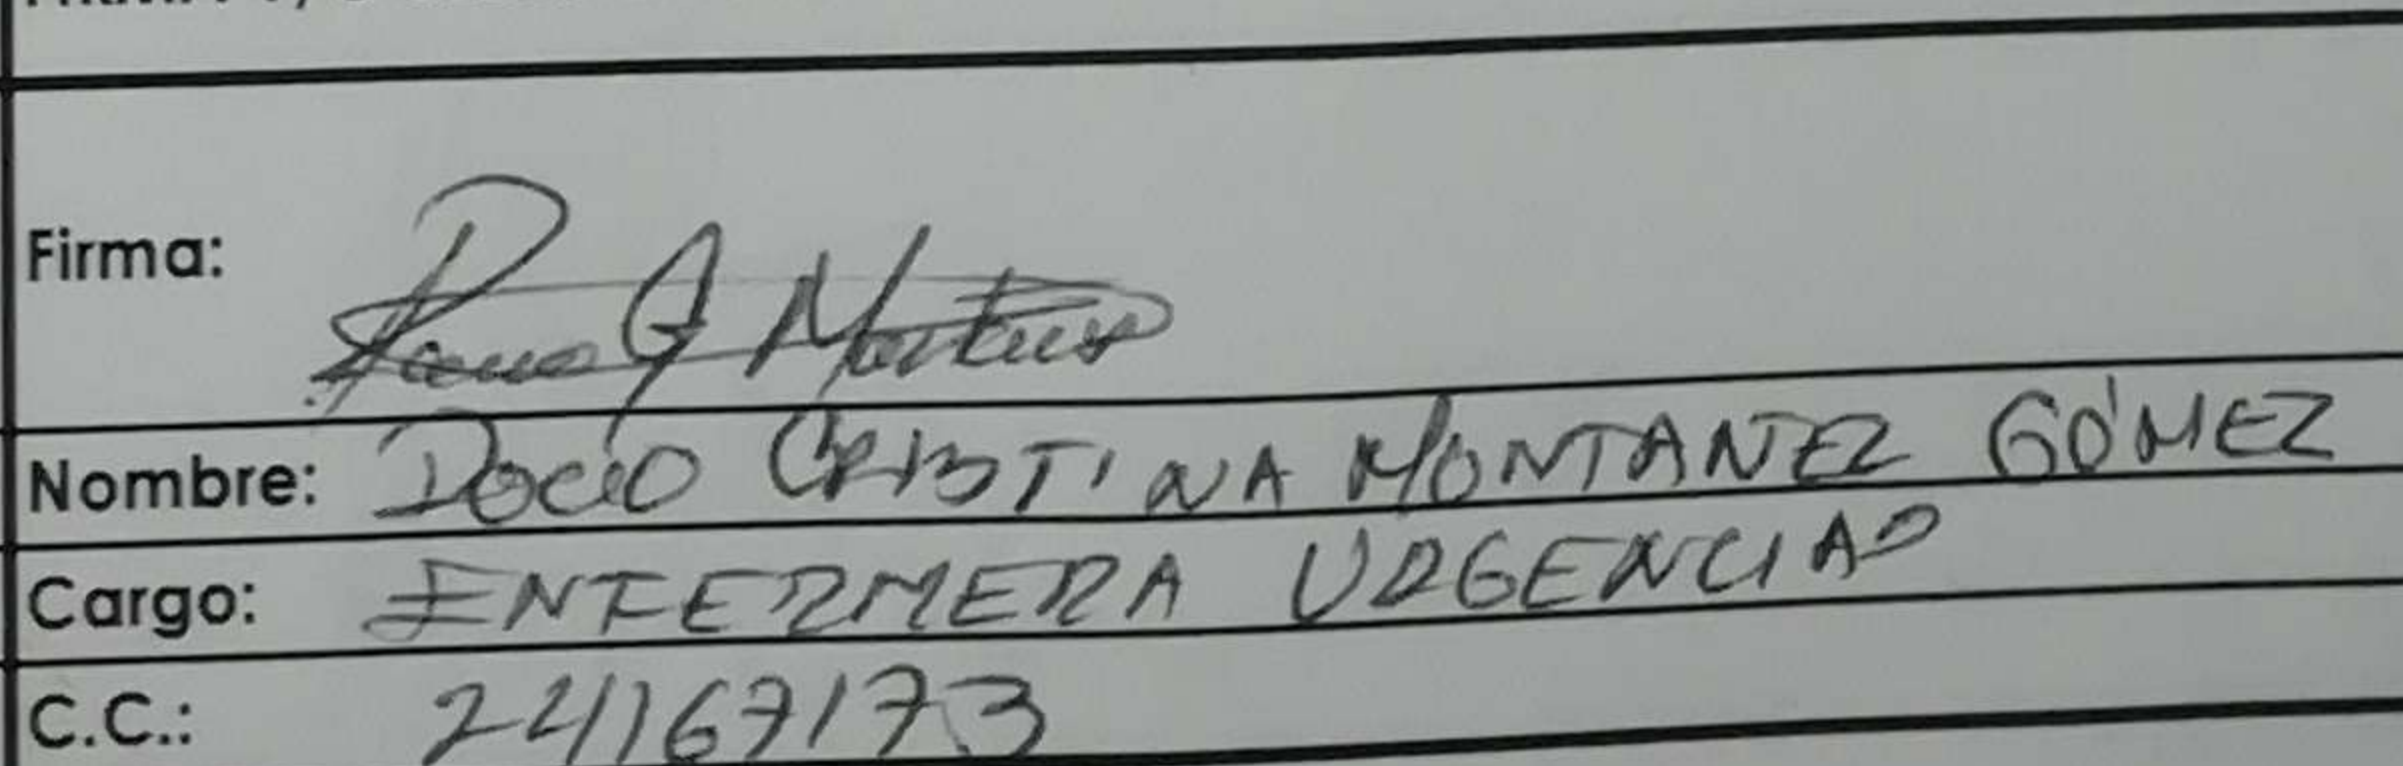 Firma:
Nombre: ROCIO CRISTINA MONTANEZ GÓMEZ
Cargo: ENFERMERA URGENCIAS
C.C.: 24167173